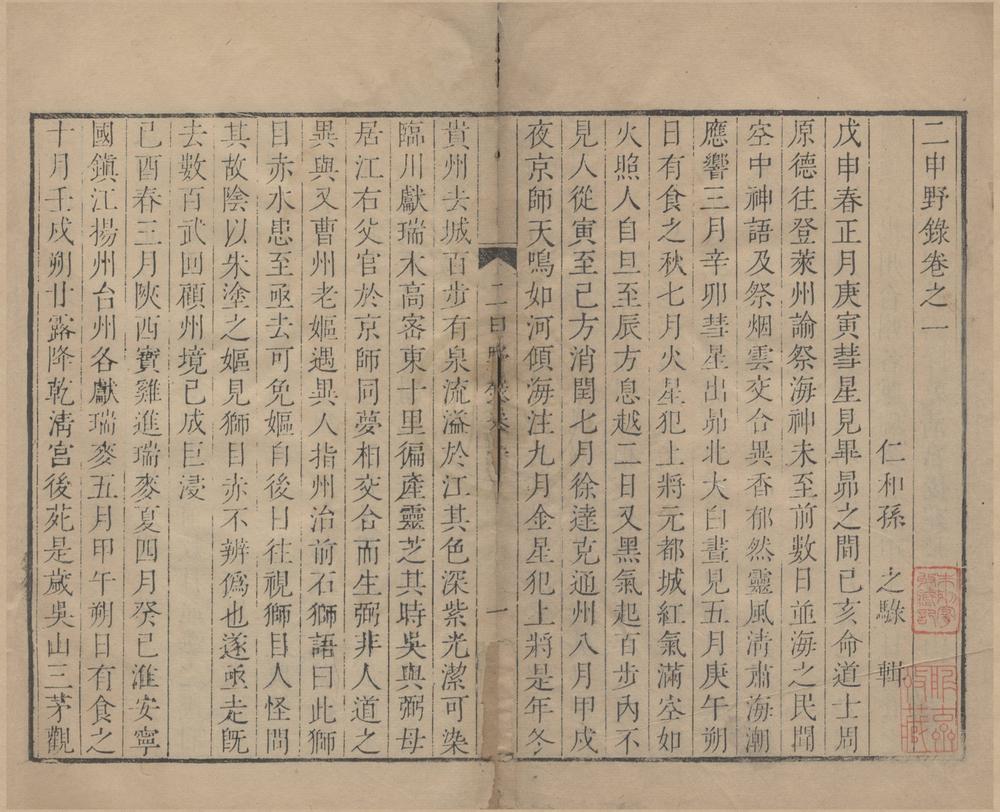 二申野錄卷之一
仁和孫　之騄　輯
戊申春正月庚寅彗星見畢昴之間己亥命道士周
原德往登萊州諭祭海神未至前數日並海之民聞
空中神語及祭烟雲交合異香郁然靈風清肅海潮
應響三月辛卯彗星出昴北大白晝見五月庚午朔
日有食之秋七月火星犯上將元都城紅氣滿空如
火照人自旦至辰方息越二日又黑氣起百步內不
見人從寅至巳方消閏七月徐達克通州八月甲戌
夜京師天鳴如河傾海注九月金星犯上將是年冬
二申野錄卷一
一
貴州去城百步有泉流溢於江其色深紫光潔可染
臨川獻瑞木高密東十里徧產靈芝其時吳與弼母
居江右父官於京師同夢相交合而生弼非人道之
異與又曹州老嫗遇異人指州治前石獅語曰此獅
目赤水患至亟去可免嫗自後日往視獅目人怪問
其故陰以朱塗之嫗見獅目赤不辨僞也遂亟走旣
去數百武回顧州境已成巨浸
己酉春三月陝西寶雞進瑞麥夏四月癸巳淮安寧
國鎮江揚州台州各獻瑞麥五月甲午朔日有食之
十月壬戌朔甘露降乾淸宮後苑是歲吳山三茅觀